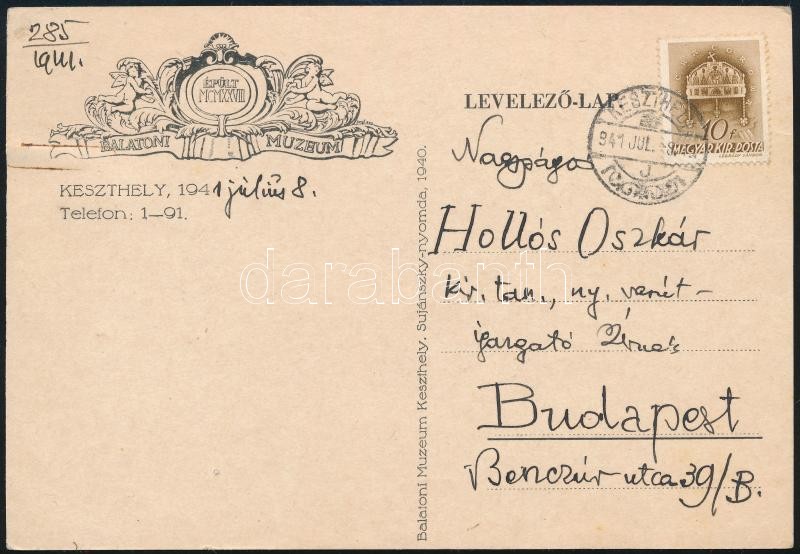 285
1941.
ÉPÜLT
MCMXXVII
BALATONI MUZEUM
KESZTHELY, 1941 július 8.
Telefon: 1—91.
Balatoni Muzeum Keszthely. Sujánszky-nyomda, 1940.
LEVELEZŐ-LAP
KESZTHELY
941 JUL.
J
10 f
MAGYAR KIR. POSTA
LÉGRÁDY SÁNDOR
Hollós Oszkár
kir. tan., ny.
igazgató
Budapest
Benczúr utca 39/B.
darabanth.com